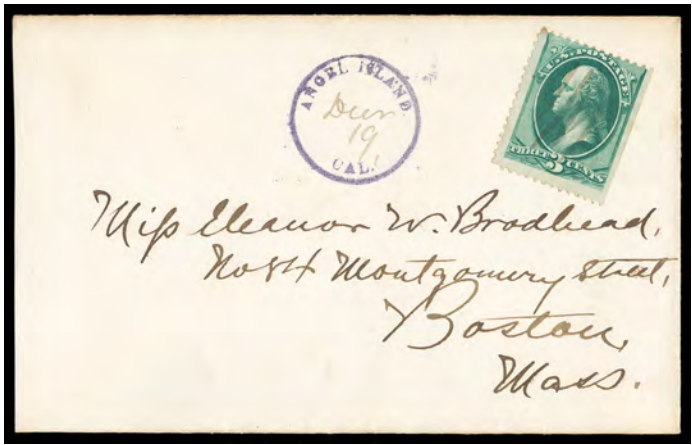 ANGEL ISLAND
19
CAL.
U.S. POSTAGE
THREE 3 CENTS
Miss Eleanor W. Brodhead,
No 84 Montgomery Street,
Boston,
Mass.